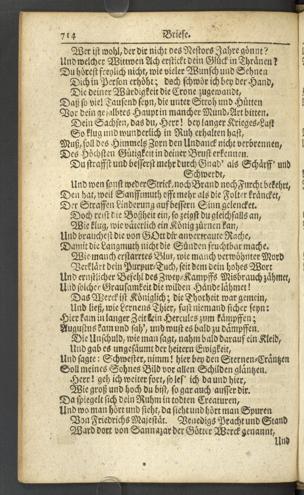 714 Briefe.
Wer ist wohl, der dir nicht des Nestors Jahre gönnt?
Und welcher Wittwen Ach erstickt dein Glück in Thränen?
Du hörest freylich nicht, wie vieler Wunsch und Sehnen
Dich in Person erhöht; doch schwör ich bey der Hand,
Die deiner Würdigkeit die Crone zugewandt,
Daß so viel Tausend seyn, die unter Stroh und Hütten
Vor dein gesalbtes Haupt in mancher Mund-Art bitten.
Dein Sachsen, das du, Herr! bey langer Krieges-Last
So klug und wunderlich in Ruh erhalten hast,
Muß, soll des Himmels Zorn den Undanck nicht verbrennen,
Des Höchsten Gütigkeit in deiner Brust erkennen.
Du straffst und besserst mehr durch Gnad' als Schärff' und
Schwerdt,
Und wen sonst weder Strick, noch Brand noch Furcht bekehrt,
Den hat, weil Sanfftmuth offt mehr als die Folter fräncket,
Der Straffen Linderung auf bessern Sinn gelencket.
Doch reist die Boßheit ein, so zeigst du gleichfalls an,
Wie klug, wie väterlich ein König zürnen kan,
Und brauchest die von GOtt dir anvertraute Rache,
Damit die Langmuth nicht die Sünden fruchtbar mache.
Wie manch erstarrtes Blut, wie manch verwöhnter Mord
Verklärt dein Purpur-Tuch, seit dem dein hohes Wort
Und ernstlicher Befehl des Zwey-Kampffs Misbrauch zähmet,
Und solcher Grausamkeit die wilden Hände lähmet!
Das Werck ist Königlich; die Thorheit war gemein,
Und ließ, wie Lernens Thier, fast niemand sicher seyn:
Hier kam in langer Zeit kein Hercules zum kämpffen;
Augustus kam und sah', und wust es bald zu dämpffen.
Die Unschuld, wie man sagt, nahm bald darauf ein Kleid,
Und gab es ungesäumt der heitern Ewigkeit,
Und sagte: Schwester, nimm! hier bey den Sternen-Cräntzen
Soll meines Sohnes Bild vor allen Schilden gläntzen.
Herr! geh ich weiter fort, so les' ich da und hier,
Wie groß und hoch du bist, so gar auch ausser dir.
Da spiegelt sich dein Ruhm in todten Creaturen,
Und wo man hört und sieht, da sieht und hört man Spuren
Von Friedrichs Majestät. Venedigs Pracht und Stand
Ward dort von Sannazar der Götter Werck genannt,
Und